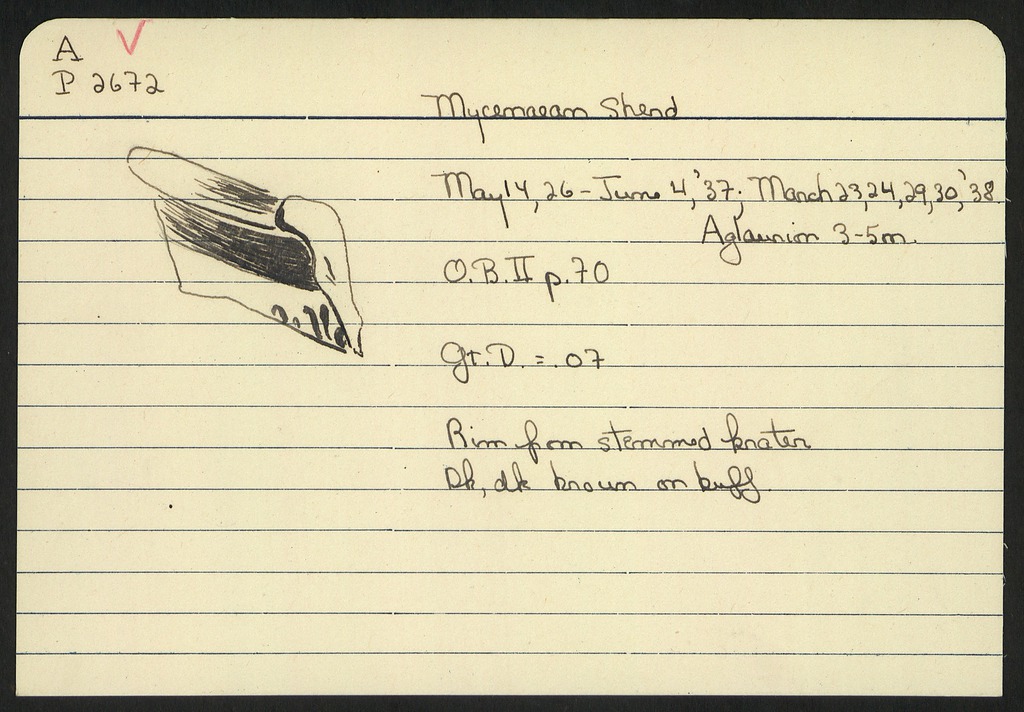 A ✓
P 2672
Mycenaean Sherd
May 14, 26 - June 4, '37; March 23, 24, 29, 30, '38
Aglaurion 3-5m.
O.B. II p. 70
Gr. D. = .07
Rim from stemmed krater
Bk, dk brown on buff